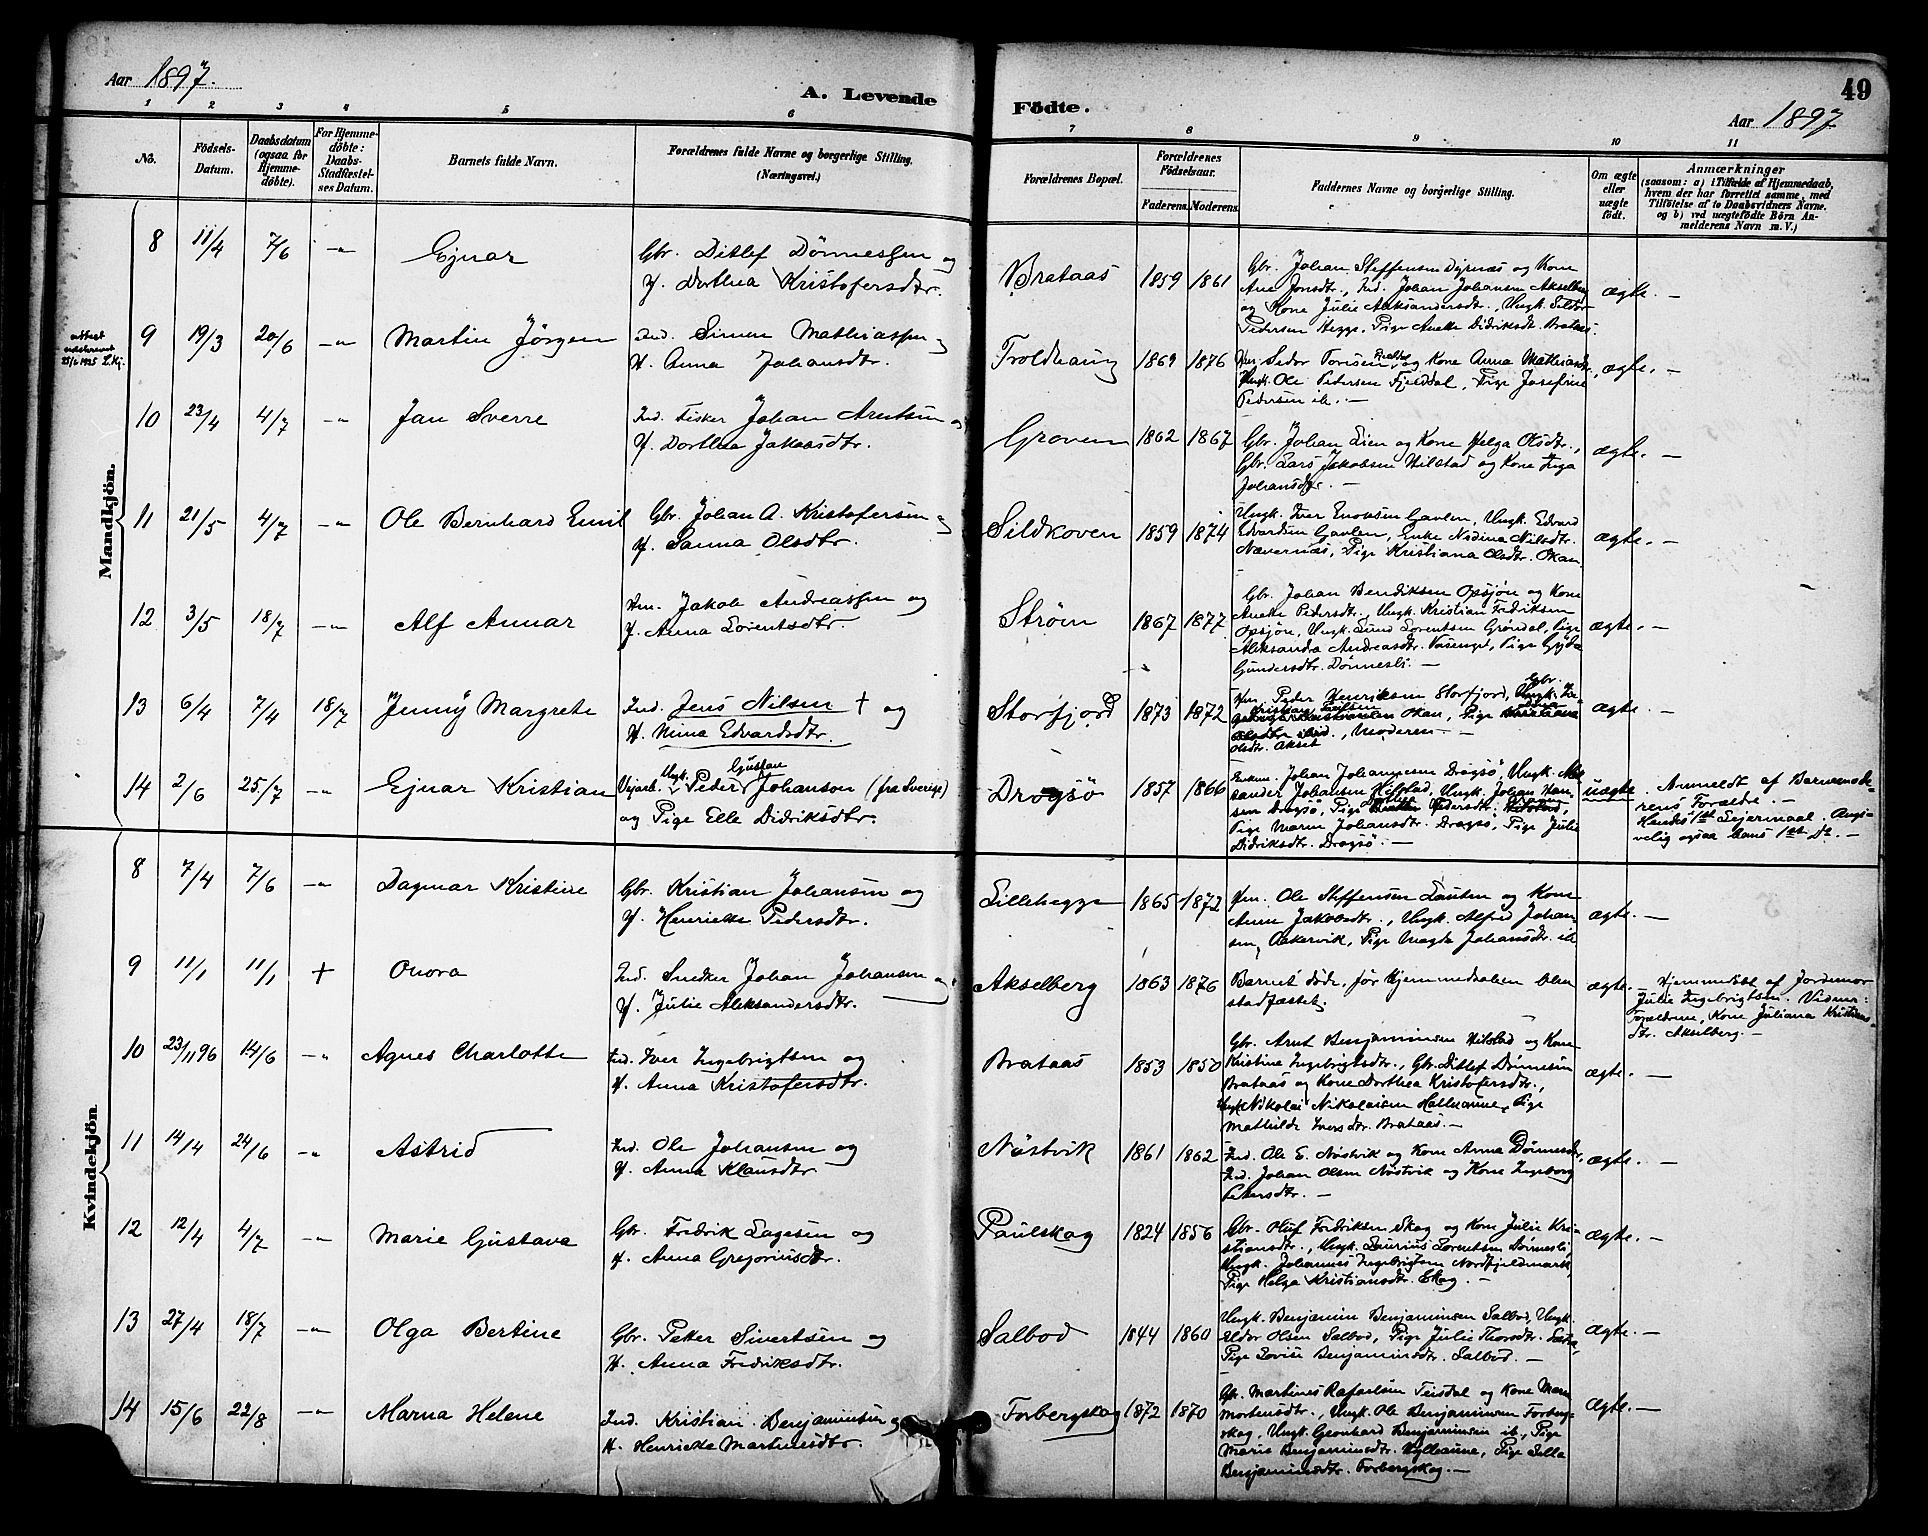 Aar 1897.
A. Levende
Fødte.
49
Aar 1897
1
2
3
4
5
6
7
8
9
10
11
No.
Fødsels-
Datum.
Daabsdatum
(ogsaa for
Hjemme-
døbte).
For Hjemme-
døbte:
Daabs-
Stadfæstel-
ses Datum.
Barnets fulde Navn.
Forældrenes fulde Navne og borgerlige Stilling.
(Næringsvei.)
Forældrenes Bopæl.
Forældrenes
Fødselsaar.
Faderens. Moderens.
Faddernes Navne og borgerlige Stilling.
Om ægte
eller
uægte
født.
Anmærkninger
(saasom: a) i Tilfælde af Hjemmedaab,
hvem der har forrettet samme, med
Tilføielse af to Daabsvidners Navne.
og b) ved uægtefødte Børn An-
melderens Navn m. V.)
Mandkjön.
8 11/4 7/6 -"- Ejnar
Gbr. Ditlef Dönnessen og
H. Dorthea Kristofersdtr.
Brataas 1859 1861
Gbr. Johan Steffensen Dyrnæs og Kone
Ane Jonsdtr., Ind. Johan Johansen Akselberg
og Kone Julie Aleksandersdtr., Ungk. Seldor
Pedersen Hegge, Pige Anette Didriksdt. Brataas.
ægte. —
attest
25/6 1935
9 19/3 20/6 -"- Martin Jörgen
Ind. Simen Mathiassen og
H. Anna Johansdtr.
Troldhaug 1869 1876
Hm. Sedor Tomsen, og Kone Anna Mathiasdtr.,
Ungk. Ole Pedersen Fjelddal, Pige Josefine
Pedersen ib. —
ægte. —
10 23/4 4/7 -"- Jan Sverre
Ind. Fisker Johan Arntsen og
H. Dorthea Jakobsdtr.
Groven 1862 1867
Gbr. Johan Lien og Kone Helga Olsdtr.,
Gbr. Lars Jakobsen Hilstad og Kone Inga
Johansdtr. —
ægte. —
11 21/5 4/7 -"- Ole Bernhard Emil
Gbr. Johan A. Kristofersen og
H. Sanna Olsdtr.
Sildkoven 1859 1874
Ungk. Iver Enoksen Gavlen, Ungk. Edvard
Edvardsen Gavlen, Enke Nidina Nilsdtr.
Nævernæs, Pige Kristiana Olsdtr. Okan.
ægte. —
12 3/5 18/7 -"- Alf Annar
Hm. Jakob Andreassen og
H. Anna Lorentsdtr
Strøm 1867 1877
Gbr. Johan Bendiksen Opsjön og Kone
Anette Pedersdtr., Ungk. Kristian Fredriksen
Opsjön, Ungk. Lund Lorentsen Gröndal, Pige
Aleksandra Andreasdtr. Vasenget, Pige Gyda
Gundersdtr. Dönnesli. —
ægte. —
13 6/4 7/4 18/7 Jenny Margrete
Ind. Jens Nilsen † og
H. Nina Edvardsdtr.
Storfjord 1873 1872
Hm. Peder Henriksen Storfjord, Gbr.
Okan, Pige
Olsdtr. Akset, Moderen —
ægte. —
14 2/6 25/7 -"- Ejnar Kristian
Ungk. Peder Gustav Johanson (fra Sverige)
og Pige Elle Didriksdtr.
Dragsö 1857 1866
Enkem. Johan Johannesen Dragsö, Ungk. Alek-
sander Johansen Hilstad, Ungk. Johan Han-
sen Dragsö, Pige Pedersdtr.
Pige Maren Johansdtr. Dragsö, Pige Julie
Didriksdtr. Dragsö. —
uægte.
Anmeldt af Barnemode-
rens Forældre. —
Hendes 1st Leiermaal. Angi-
velig ogsaa hans 1st Do. —
Kvindekjön
8 7/4 7/6 -"- Dagmar Kristine
Gbr. Kristian Johansen og
H. Henriette Pedersdtr.
Lillehegge 1865 1872
Hm. Ole Steffensen Lauten og Kone
Anne Jakobsdtr., Ungk. Alfred Johan-
sen, Aakervik, Pige Magda Johansdtr. ib
ægte. —
9 11/1 11/1 + Onora
Ind. Snedker Johan Johansen og
H. Julie Aleksandersdtr.
Akselberg 1863 1876
Barnet döde, før Hjemmedaaben blev
stadfæstet.
ægte. —
Hjemmedöbt af Jordemor
Julie Ingebrigtsen. Vidner:
Forældrene, Kone Juliana Kristians-
dtr. Akselberg. —
10 23/11 96 14/6 -"- Agnes Charlotte
Ind. Iver Ingebrigtsen og
H. Anna Kristofersdtr.
Brataas 1853 1850
Gbr. Arnt Benjaminsen Hilstad og Kone
Kristine Ingebrigtsdtr., Gbr. Ditlef Dönnesen
Brataas og Kone Dorthea Kristofersdtr.,
Ungk. Nikolai Nikolaisen Hatleaune, Pige
Mathilde Iversdtr. Brataas. —
ægte. —
11 14/4 24/6 -"- Astrid
Ind. Ole Johansen og
H. Anna Klausdtr
Nöstvik 1861 1862
Ind. Ole E. Nöstvik og Kone Anna Dönnesdtr.,
Ind. Johan Olsen Nöstvik og Kone Ingeborg
Petersdtr. —
ægte. —
12 12/4 4/7 -"- Marie Gustava
Gbr. Fredrik Lagesen og
H. Anna Gregoriusdtr.
Paulskag 1824 1856
Gbr. Oluf Fredriksen Skag og Kone Julie Kri-
stiansdtr., Ungk. Laurius Lorentsen Dönnesli,
Ungk. Johannes Ingebrigtsen Nordfjeldmark,
Pige Helga Kristiansdtr. Skag. —
ægte. —
13 27/4 18/7 -"- Olga Bertine
Gbr. Peter Sivertsen og
H. Anna Fredriksdtr.
Salbod 1844 1860
Ungk. Benjamin Benjaminsen Salbod, Ungk.
Eldor Olsen Salbod, Pige Julie Thorsdtr.
Pige Lovise Benjaminsdtr. Salbod. —
ægte. —
14 15/6 22/8 -"- Marna Helene
Ind. Kristian Benjaminsen og
H. Henriette Martinusdtr.
Forbergskag 1872 1870
Gbr. Martines Rafaelsen Teisdal og Kone
Mortensdtr., Ungk. Ole Benjaminsen Forberg-
skag, Ungk. Geonhard Benjaminsen ib, Pige
Marie Benjaminsdtr. Hylleaune, Pige Sella
Benjaminsdtr. Forbergskag. —
ægte. —